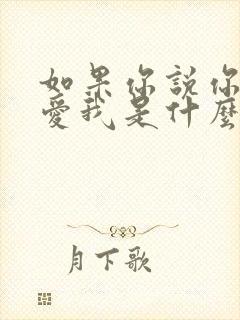 如果你說你
愛我是什麼
月下歌